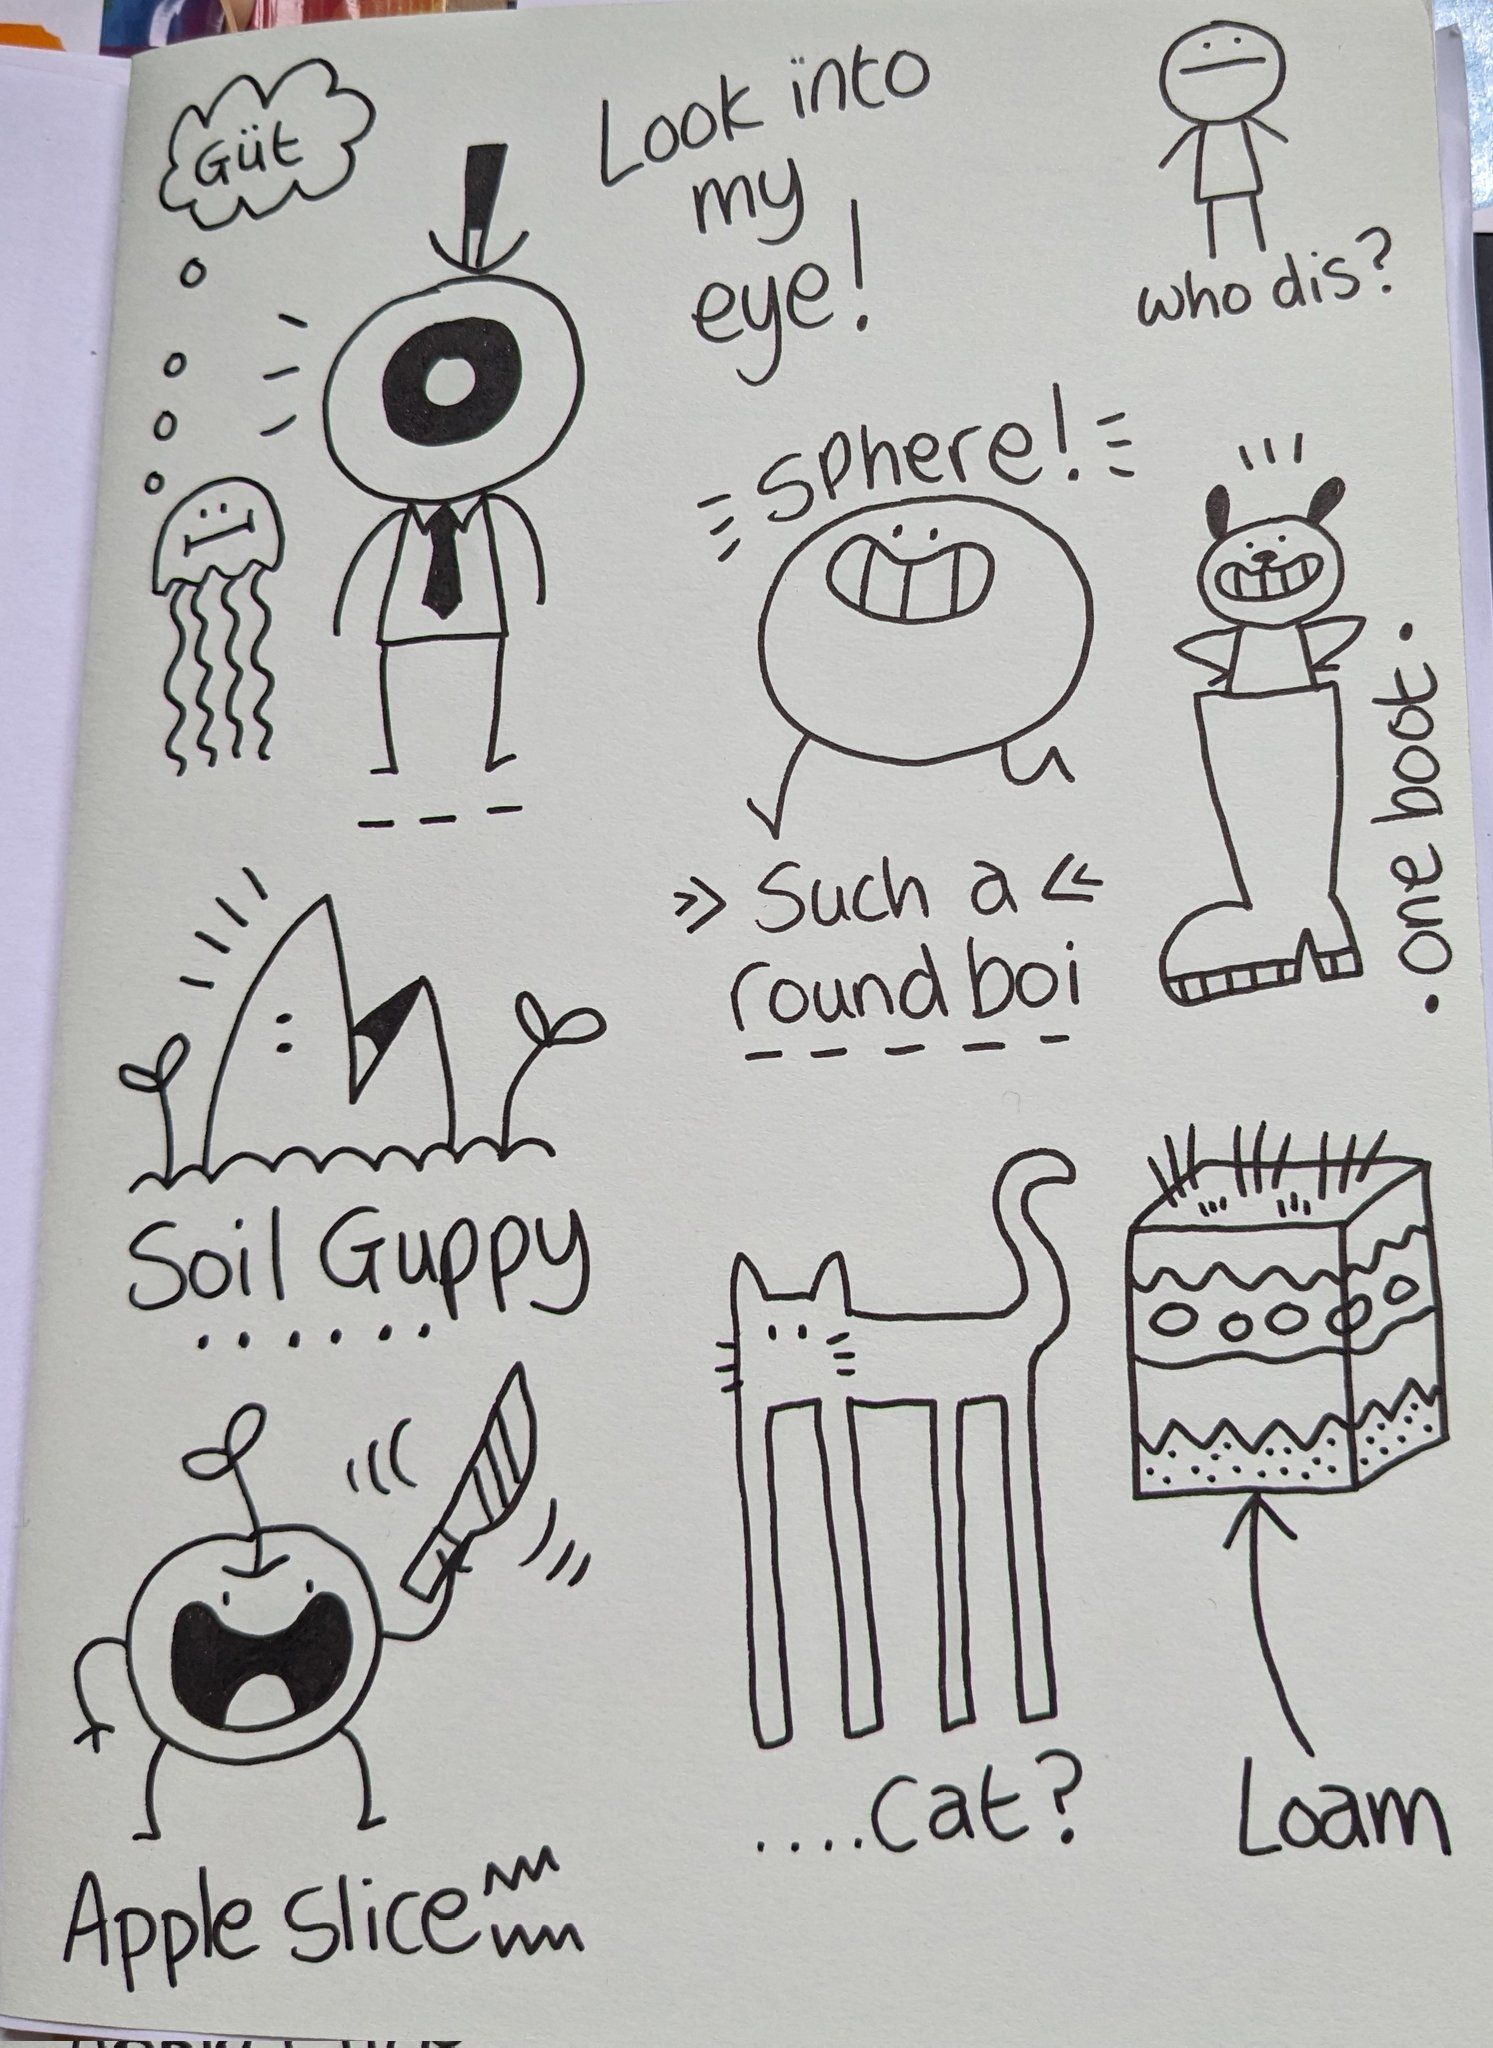 Güt
Look into
my
eye!
who dis?
Sphere!
Such a
round boi
. one boot .
Soil Guppy
....cat?
Loam
Apple Slice